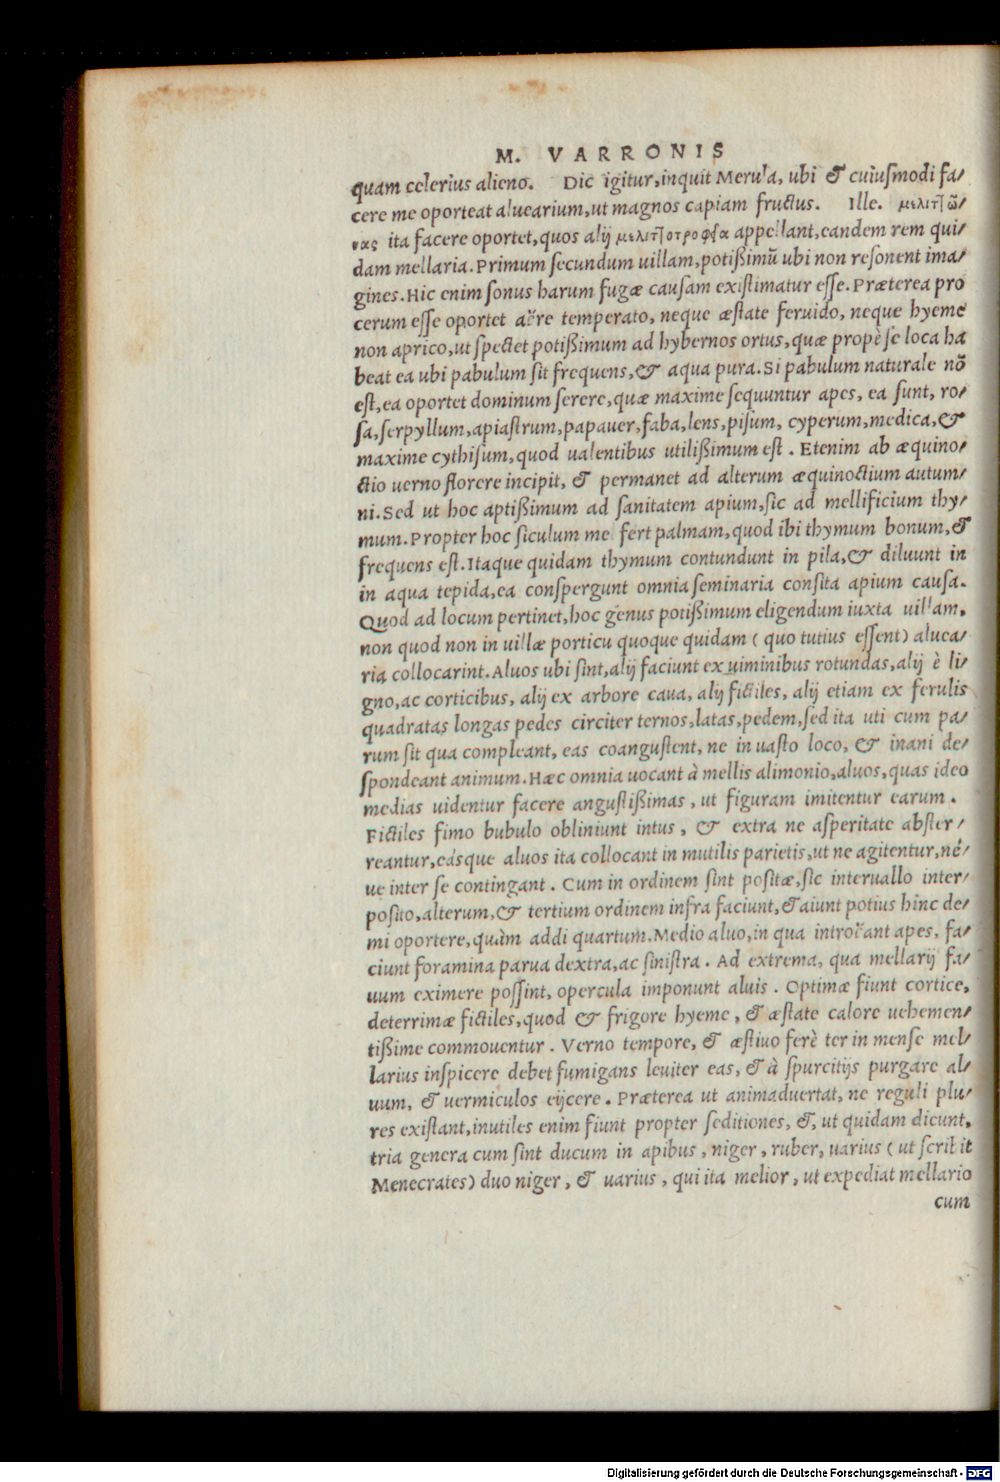 M. VARRONIS
quam celerius alieno. Dic igitur, inquit Merula, ubi & cuiusmodi fa/
cere me oporteat aluearium, ut magnos capiam fructus. Ille. μελιττῶ/
νας ita facere oportet, quos alij μελιττοτροφεῖα appellant, eandem rem qui/
dam mellaria. Primum secundum uillam, potißimū ubi non resonent ima/
gines. Hic enim sonus harum fugæ causam existimatur esse. Præterea pro
cerum esse oportet aëre temperato, neque æstate feruido, neque hyeme
non aprico, ut spectet potißimum ad hybernos ortus, quæ propè se loca ha
beat ea ubi pabulum sit frequens, & aqua pura. Si pabulum naturale nō
est, ea oportet dominum serere, quæ maxime sequuntur apes, ea sunt, ro/
sa, serpyllum, apiastrum, papauer, faba, lens, pisum, cyperum, medica, &
maxime cythisum, quod ualentibus utilißimum est. Etenim ab æquino/
ctio uerno florere incipit, & permanet ad alterum æquinoctium autum/
ni. Sed ut hoc aptißimum ad sanitatem apium, sic ad mellificium thy/
mum. Propter hoc siculum mel fert palmam, quod ibi thymum bonum, &
frequens est. Itaque quidam thymum contundunt in pila, & diluunt in
in aqua tepida, ea conspergunt omnia seminaria consita apium causa.
Quod ad locum pertinet, hoc genus potißimum eligendum iuxta uillam,
non quod non in uillæ porticu quoque quidam (quo tutius essent) aluea/
ria collocarint. Aluos ubi sint, alij faciunt ex uiminibus rotundas, alij è li/
gno, ac corticibus, alij ex arbore caua, alij fictiles, alij etiam ex ferulis
quadratas longas pedes circiter ternos, latas, pedem, sed ita uti cum pa/
rum sit qua compleant, eas coangustent, ne in uasto loco, & inani de/
spondeant animum. Hæc omnia uocant à mellis alimonio, aluos, quas ideo
medias uidentur facere angustißimas, ut figuram imitentur earum.
Fictiles fimo bubulo obliniunt intus, & extra ne asperitate abster/
reantur, eásque aluos ita collocant in mutilis parietis, ut ne agitentur, né/
ue inter se contingant. Cum in ordinem sint positæ, sic interuallo inter/
posito, alterum, & tertium ordinem infra faciunt, & aiunt potius hinc de/
mi oportere, quàm addi quartum. Medio aluo, in qua introëant apes, fa/
ciunt foramina parua dextra, ac sinistra. Ad extrema, qua mellarij fa/
uum eximere possint, opercula imponunt aluis. Optimæ fiunt cortice,
deterrimæ fictiles, quod & frigore hyeme, & æstate calore uehemen/
tißime commouentur. Verno tempore, & æstiuo ferè ter in mense mel/
larius inspicere debet fumigans leuiter eas, & à spurcitijs purgare al/
uum, & uermiculos eijcere. Præterea ut animaduertat, ne reguli plu/
res existant, inutiles enim fiunt propter seditiones, &, ut quidam dicunt,
tria genera cum sint ducum in apibus, niger, ruber, uarius (ut scribit
Menecrates) duo niger, & uarius, qui ita melior, ut expediat mellario
cum
Digitalisierung gefördert durch die Deutsche Forschungsgemeinschaft - DFG